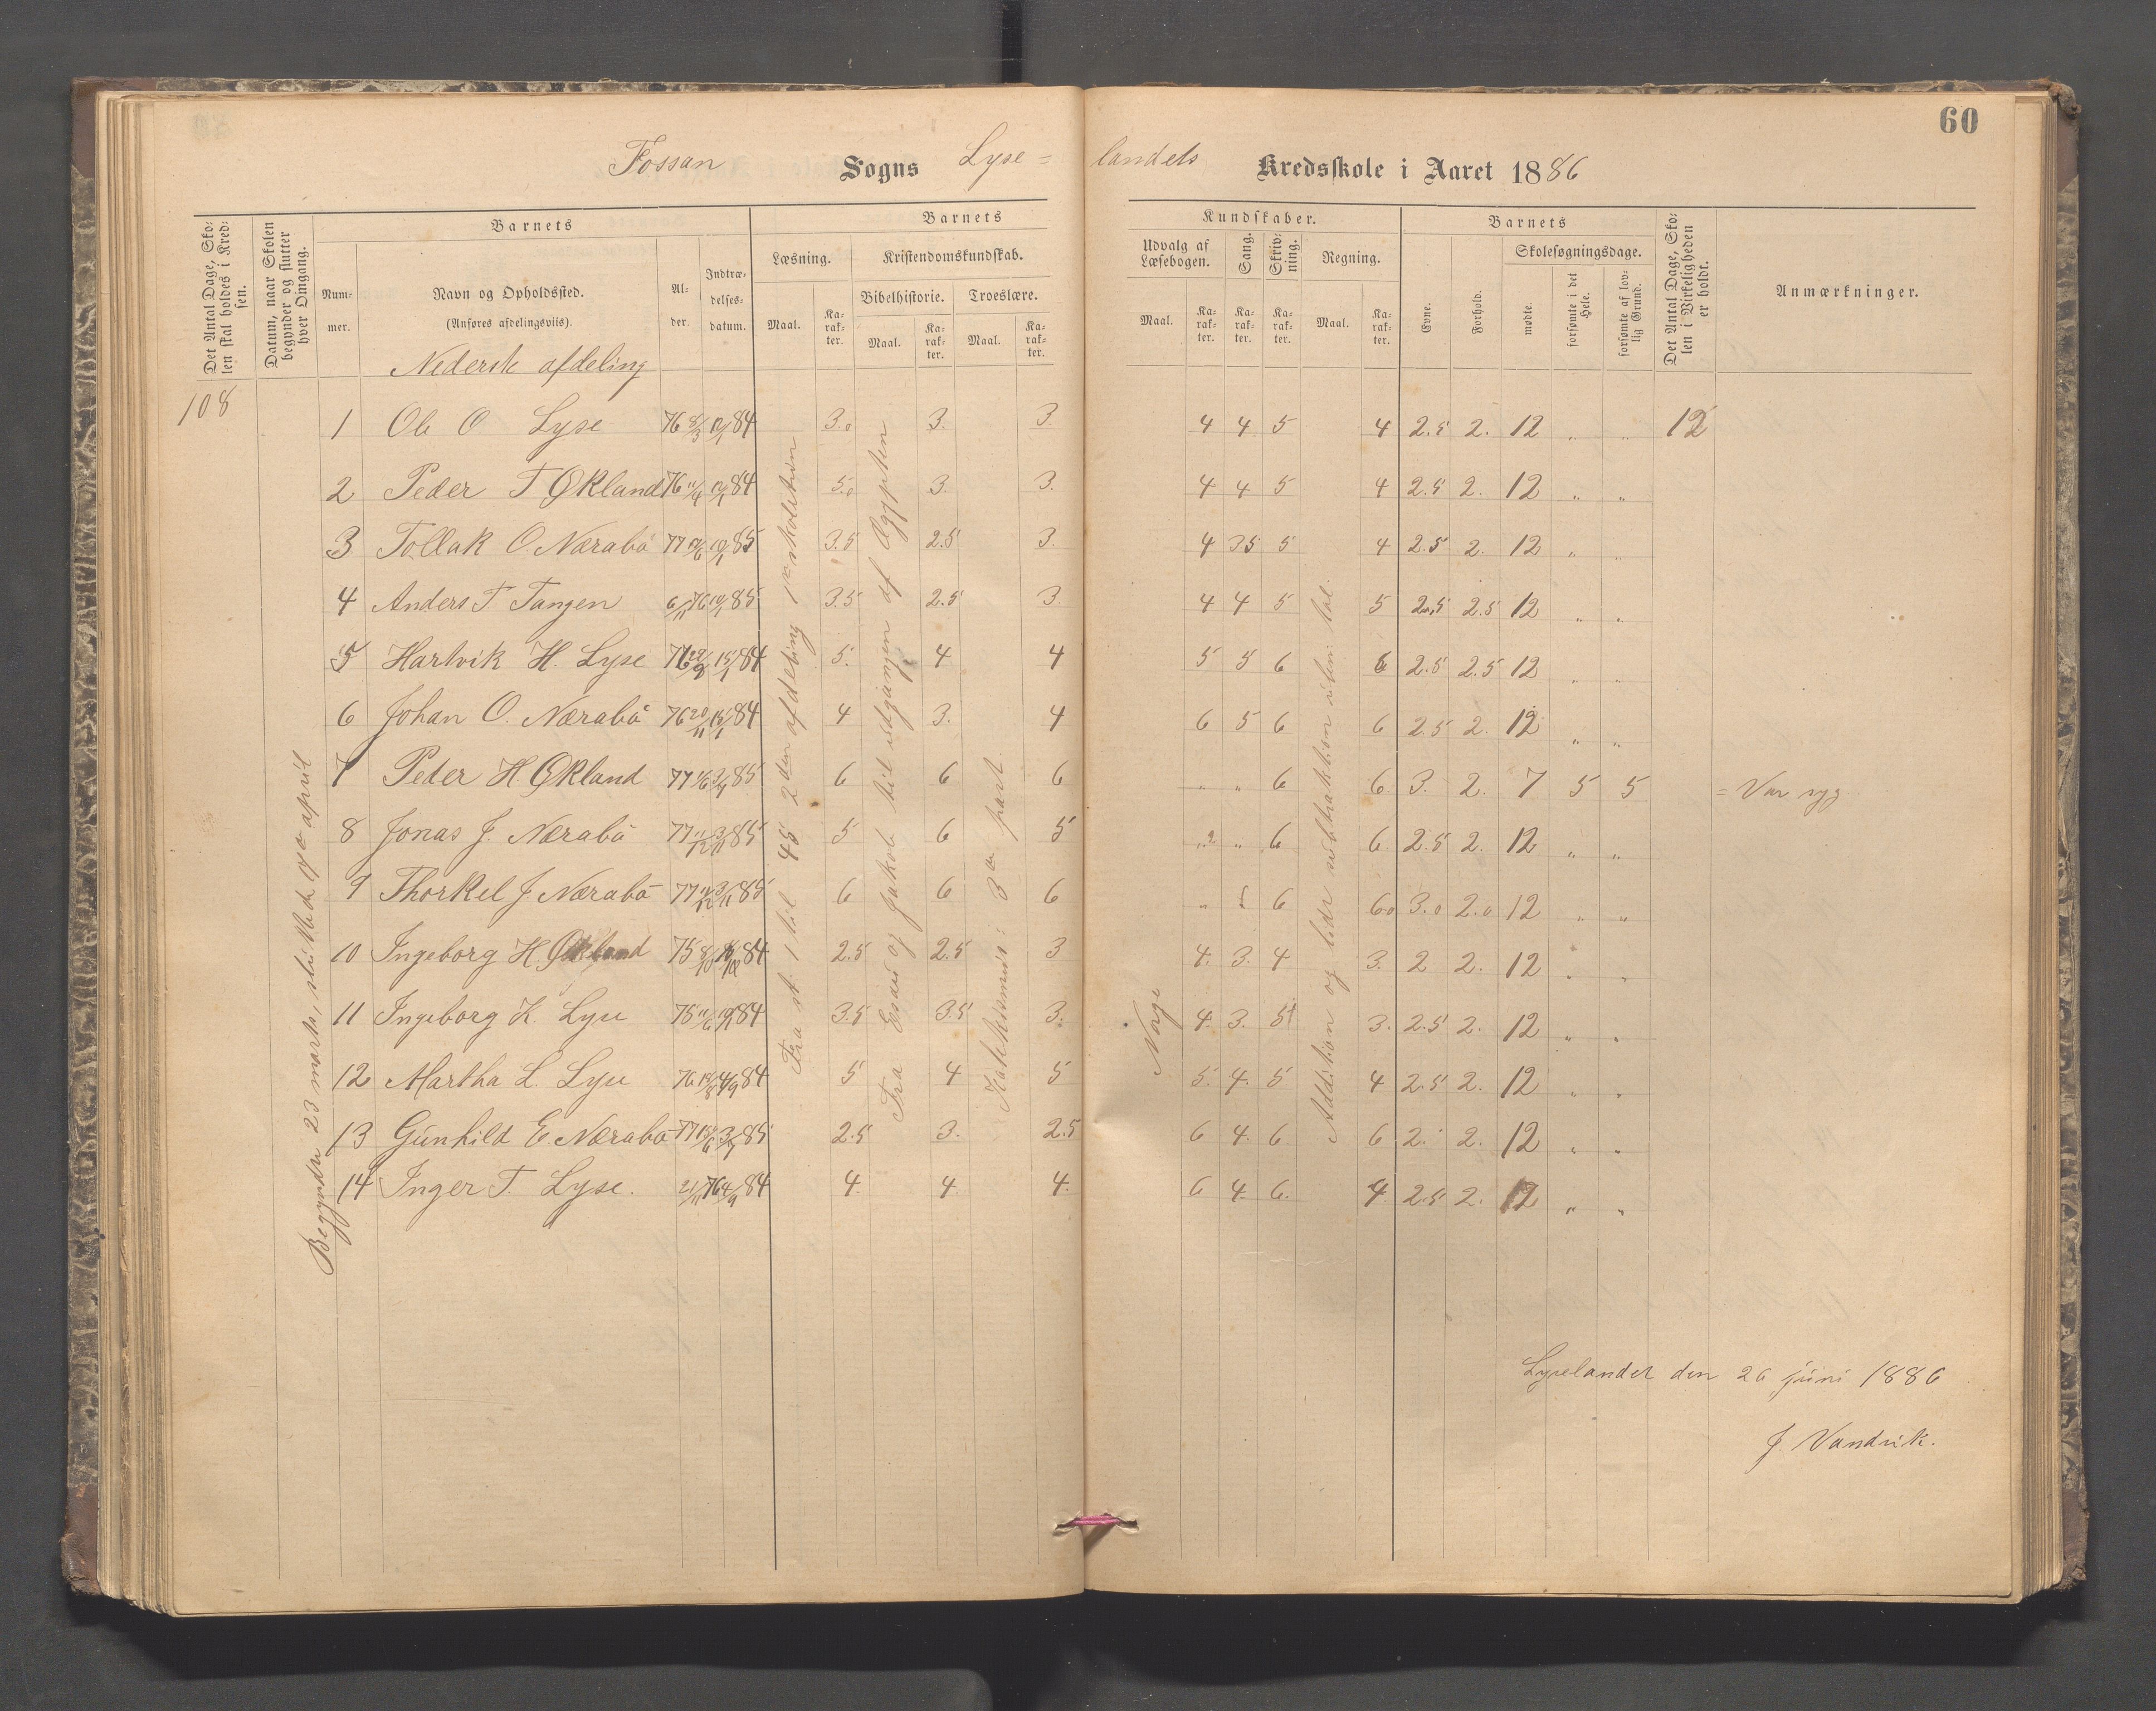 60
Fossan Sogns Lyse=landets Kredsskole i Aaret 1886
Det Antal Dage, Skolen skal holdes i Kredsen.
Datum, naar Skolen begynder og slutter hver Omgang.
Barnets
Nummer.
Navn og Opholdssted.
(Anføres afdelingsviis).
Alder.
Indtrædelsesdatum.
Barnets Kundskaber.
Læsning.
Maal.
Karakter.
Kristendomskundskab.
Bibelhistorie.
Maal.
Karakter.
Troeslære.
Maal.
Karakter.
Udvalg af Læsebogen.
Maal.
Karakter.
Sang.
Karakter.
Skrivning.
Karakter.
Regning.
Maal.
Karakter.
Barnets
Evne.
Forhold.
Skolesøgningsdage.
mødte.
forsømte i det Hele.
forsømte af lovlig Grund.
Det Antal Dage, Skolen i Virkeligheden er holdt.
Anmærkninger.
Nederste afdeling
108
1 Ole O. Lyse 76 8/3 84 3.0 3. 3. 4 4 5 4 2.5 2. 12 " " 12
2 Peder T Økland 76 11/4 84 5.0 3. 3. 4 4 5 4 2.5 2. 12 " "
3 Tollak O. Nærabö 77 85 3.5 2.5 3. 4 3.5 5 4 2.5 2. 12 " "
4 Anders T. Tangen 6/11 76 85 3.5 2.5 3. 4 4 5 5 2.5 2.5 12 " "
5 Hartvik H. Lyse 76 15/1 84 5. 4 4 5 5 6 6 2.5 2.5 12 " "
6 Johan O. Nærabö 76 20/11 15/1 84 4 3. 4 6 5 6 6 2.5 2. 12 " "
7 Peder H. Økland 77 85 6 6 6 " " 6 6 3. 2. 7 5 5 = Var syg
8 Jonas J. Nærabö 77 11/12 3/11 85 5 6 5 " " 6 6 2.5 2. 12 " "
9 Thorkel J Nærabö 77 11/12 3/11 85 6 6 6 " 6 6.0 3.0 2.0 12 " "
10 Ingeborg H. Økland 75 8/10 84 2.5 2.5 3 4. 3. 4 3. 2 2. 12 " "
11 Ingeborg K. Lyse 75 11/6 84 3.5 3.5 3. 4. 3. 5 3. 2.5 2. 12 " "
12 Martha L. Lyse 76 4/9 84 5 4 5 5. 4. 5 4 2.5 2. 12 " "
13 Gunhild E. Nærabö 77 85 2.5 3. 2.5 6 4. 6 6 2. 2. 12 " "
14 Inger T. Lyse. 21/11 76 4/9 84 4. 4 4. 6 4. 6. 4 2.5 2. 12 " "
Begyndte 23 marts, sluttede april
Fra st. 1 til 45 2den afdeling 1ste skoletrin
Fra Esau og Jakob til udgangen af Ægypten
Katekismus: 3die part
Norge
Addition og lidt subtraktion uben. tal.
Lyselandet den 26 juni 1886
J. Vandvik.